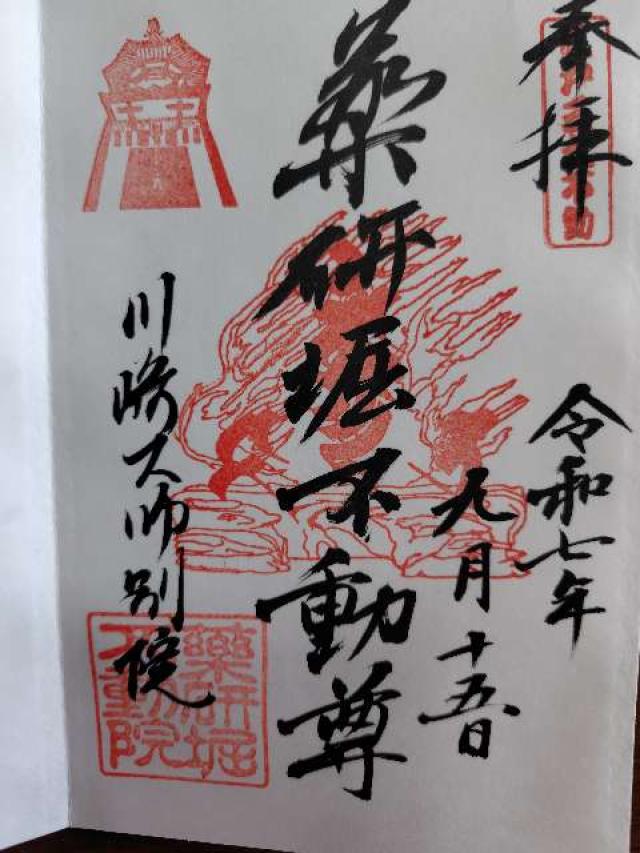 奉拝
令和七年
九月十五日
薬研堀不動尊
川崎大師別院
薬研堀
不動院